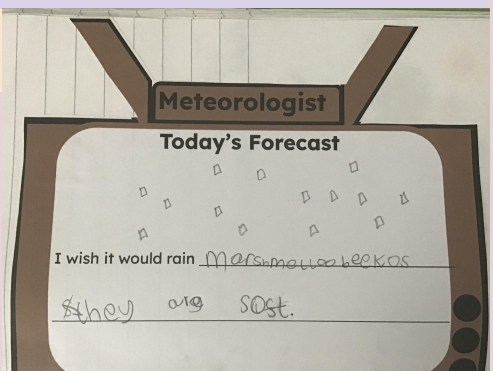 Meteorologist
Today's Forecast
I wish it would rain marshmelloobeekos
they are soft.